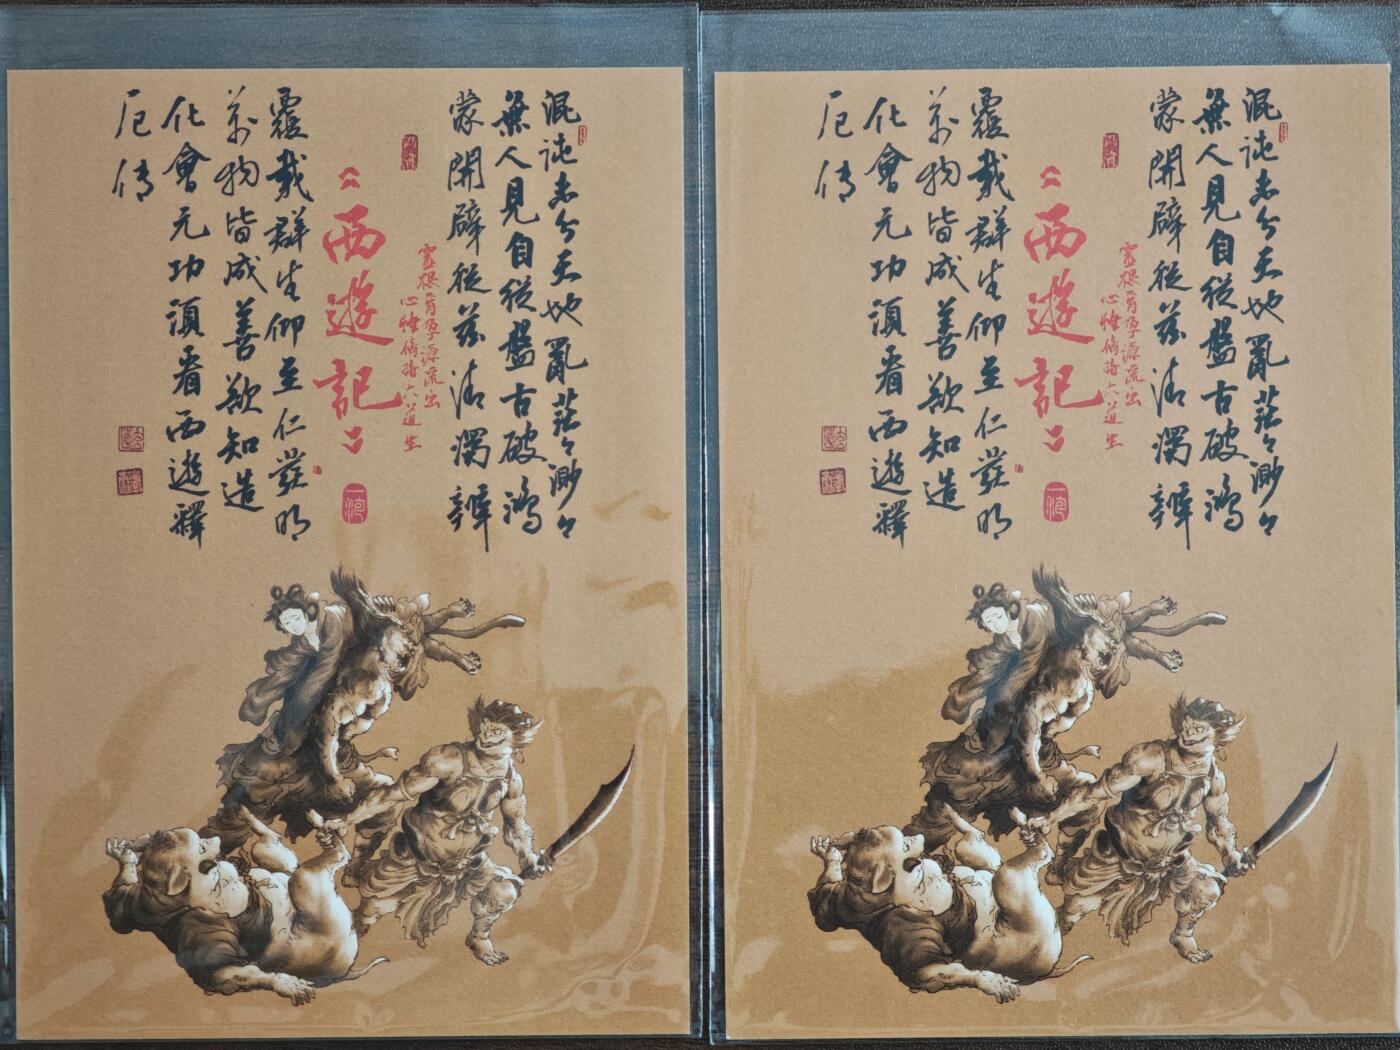 混沌未分天地亂茫々渺々
無人見自從盤古破鴻
蒙開辟從茲清濁辨
靈根育孕源流出
心性脩持大道生
《西遊記》
一泡
覆載群生仰至仁發明
萬物皆成善欲知造
化會元功須看西遊釋
厄传
混沌未分天地亂茫々渺々
無人見自從盤古破鴻
蒙開辟從茲清濁辨
靈根育孕源流出
心性脩持大道生
《西遊記》
一泡
覆載群生仰至仁發明
萬物皆成善欲知造
化會元功須看西遊釋
厄传